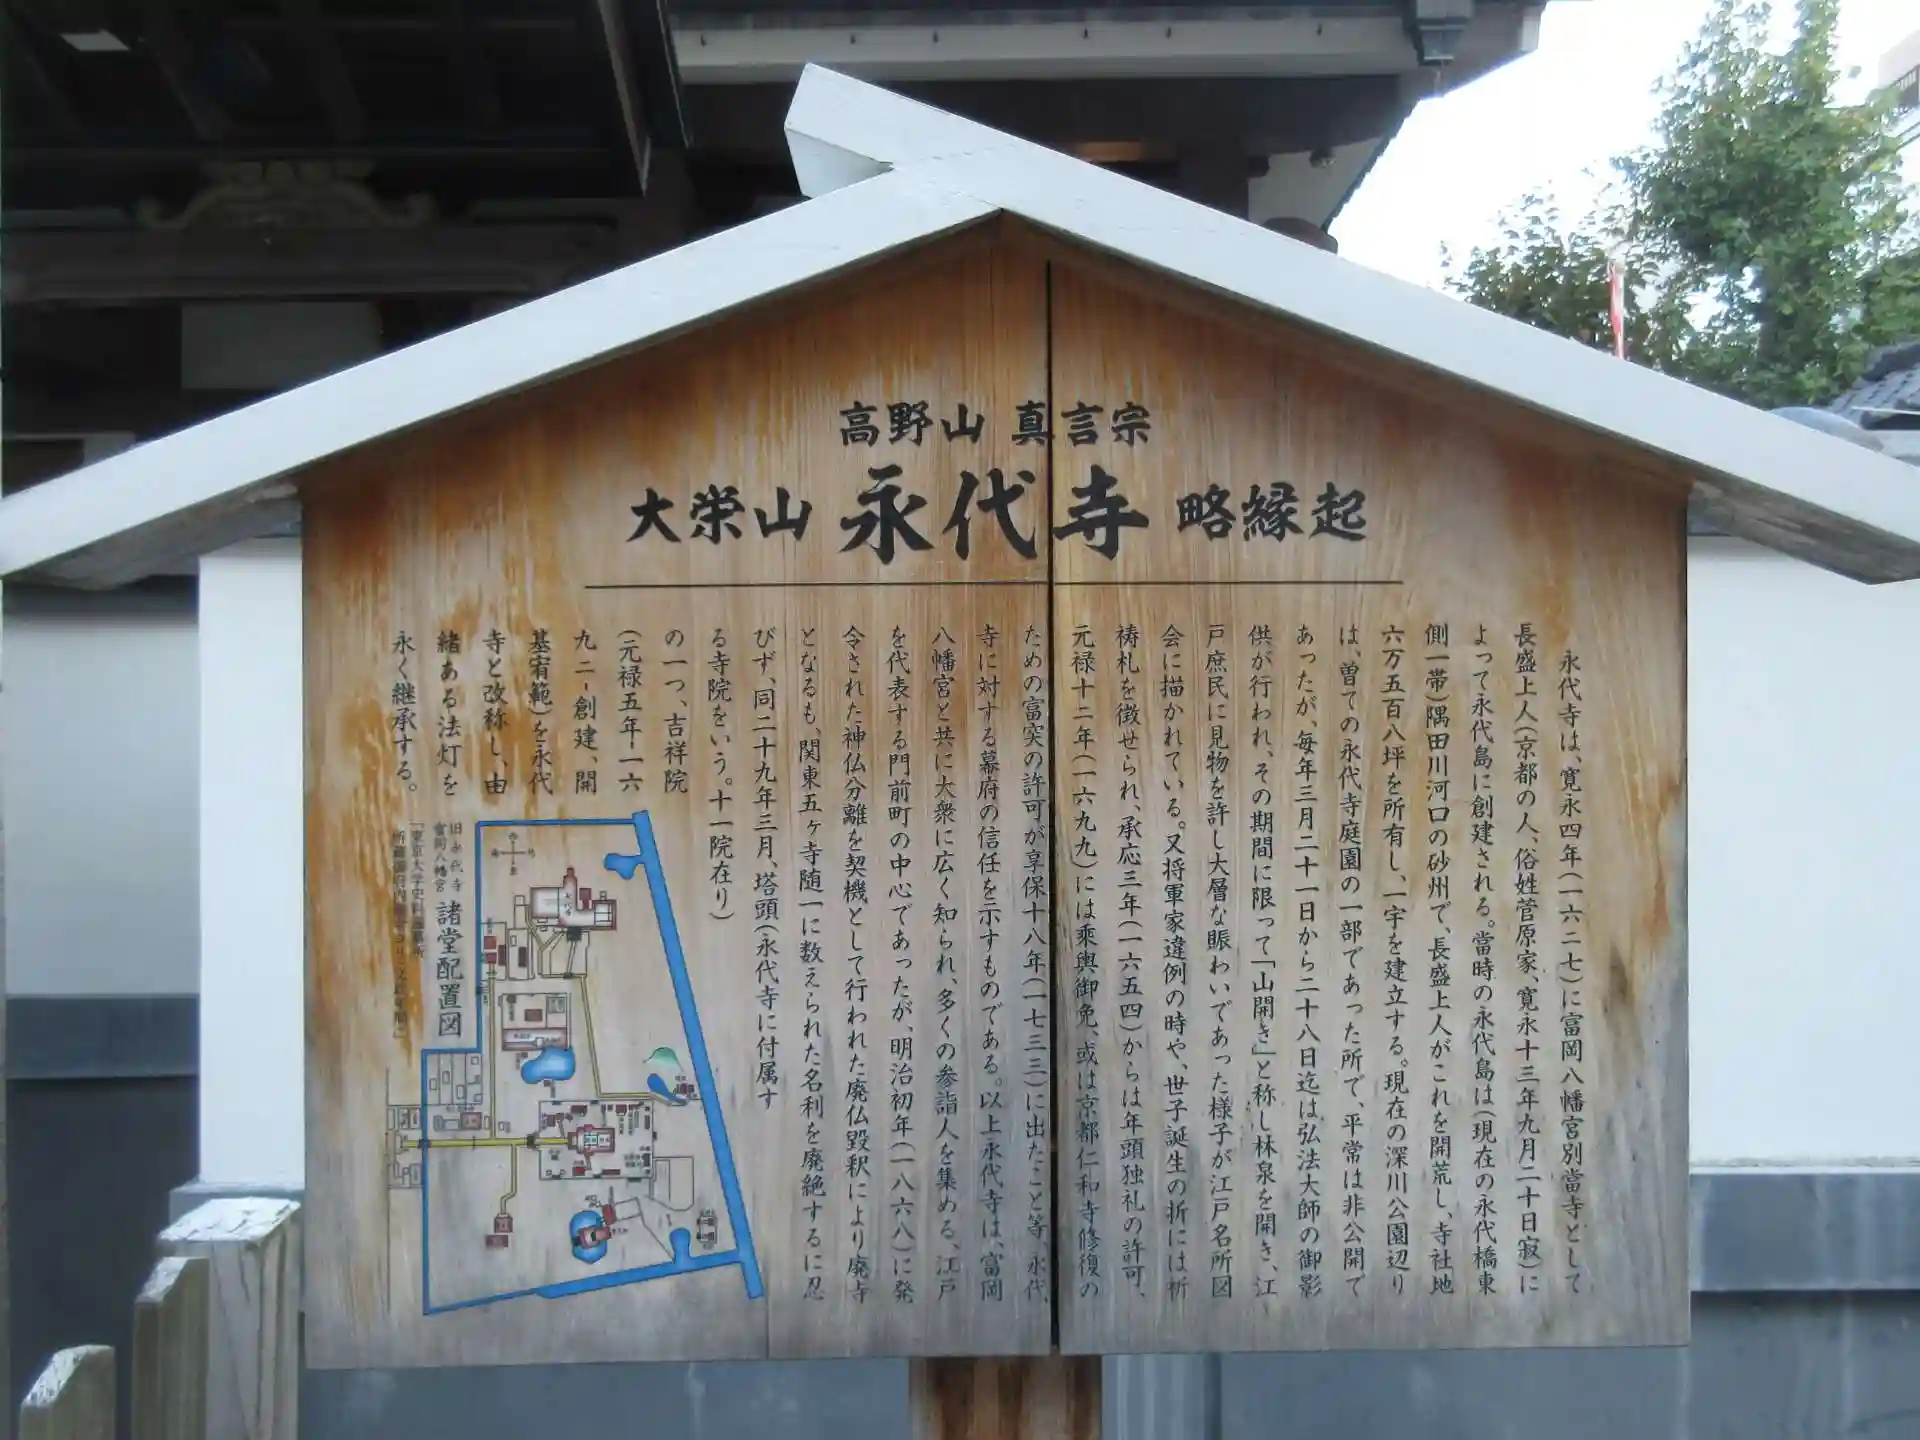 高野山 真言宗
大栄山 永代寺 略縁起
永代寺は、寛永四年(一六二七)に富岡八幡宮別當寺として
長盛上人(京都の人、俗姓菅原家、寛永十三年九月二十日寂)に
よって永代島に創建される。當時の永代島は(現在の永代橋東
側一帯)隅田川河口の砂州で、長盛上人がこれを開荒し、寺社地
六万五百八坪を所有し、一宇を建立する。現在の深川公園辺り
は、曽ての永代寺庭園の一部であった所で、平常は非公開で
あったが、毎年三月二十一日から二十八日迄は弘法大師の御影
供が行われ、その期間に限って「山開き」と称し林泉を開き、江
戸庶民に見物を許し大層な賑わいであった様子が江戸名所図
会に描かれている。又将軍家違例の時や、世子誕生の折には祈
祷札を徴せられ、承応三年(一六五四)からは年頭独礼の許可、
元禄十二年(一六九九)には乗輿御免、或は京都仁和寺修復の
ための富突の許可が享保十八年(一七三三)に出たこと等、永代
寺に対する幕府の信任を示すものである。以上永代寺は、富岡
八幡宮と共に大衆に広く知られ、多くの参詣人を集める、江戸
を代表する門前町の中心であったが、明治初年(一八六八)に発
令された神仏分離を契機として行われた廃仏毀釈により廃寺
となるも、関東五ヶ寺随一に数えられた名利を廃絶するに忍
びず、同二十九年三月、塔頭(永代寺に付属す
る寺院をいう。十一院在り)
の一つ、吉祥院
(元禄五年-一六
九二-創建、開
基宥範)を永代
寺と改称し、由
緒ある法灯を
永く継承する。
旧永代寺
富岡八幡宮
諸堂配置図
「東京大学史料編纂所